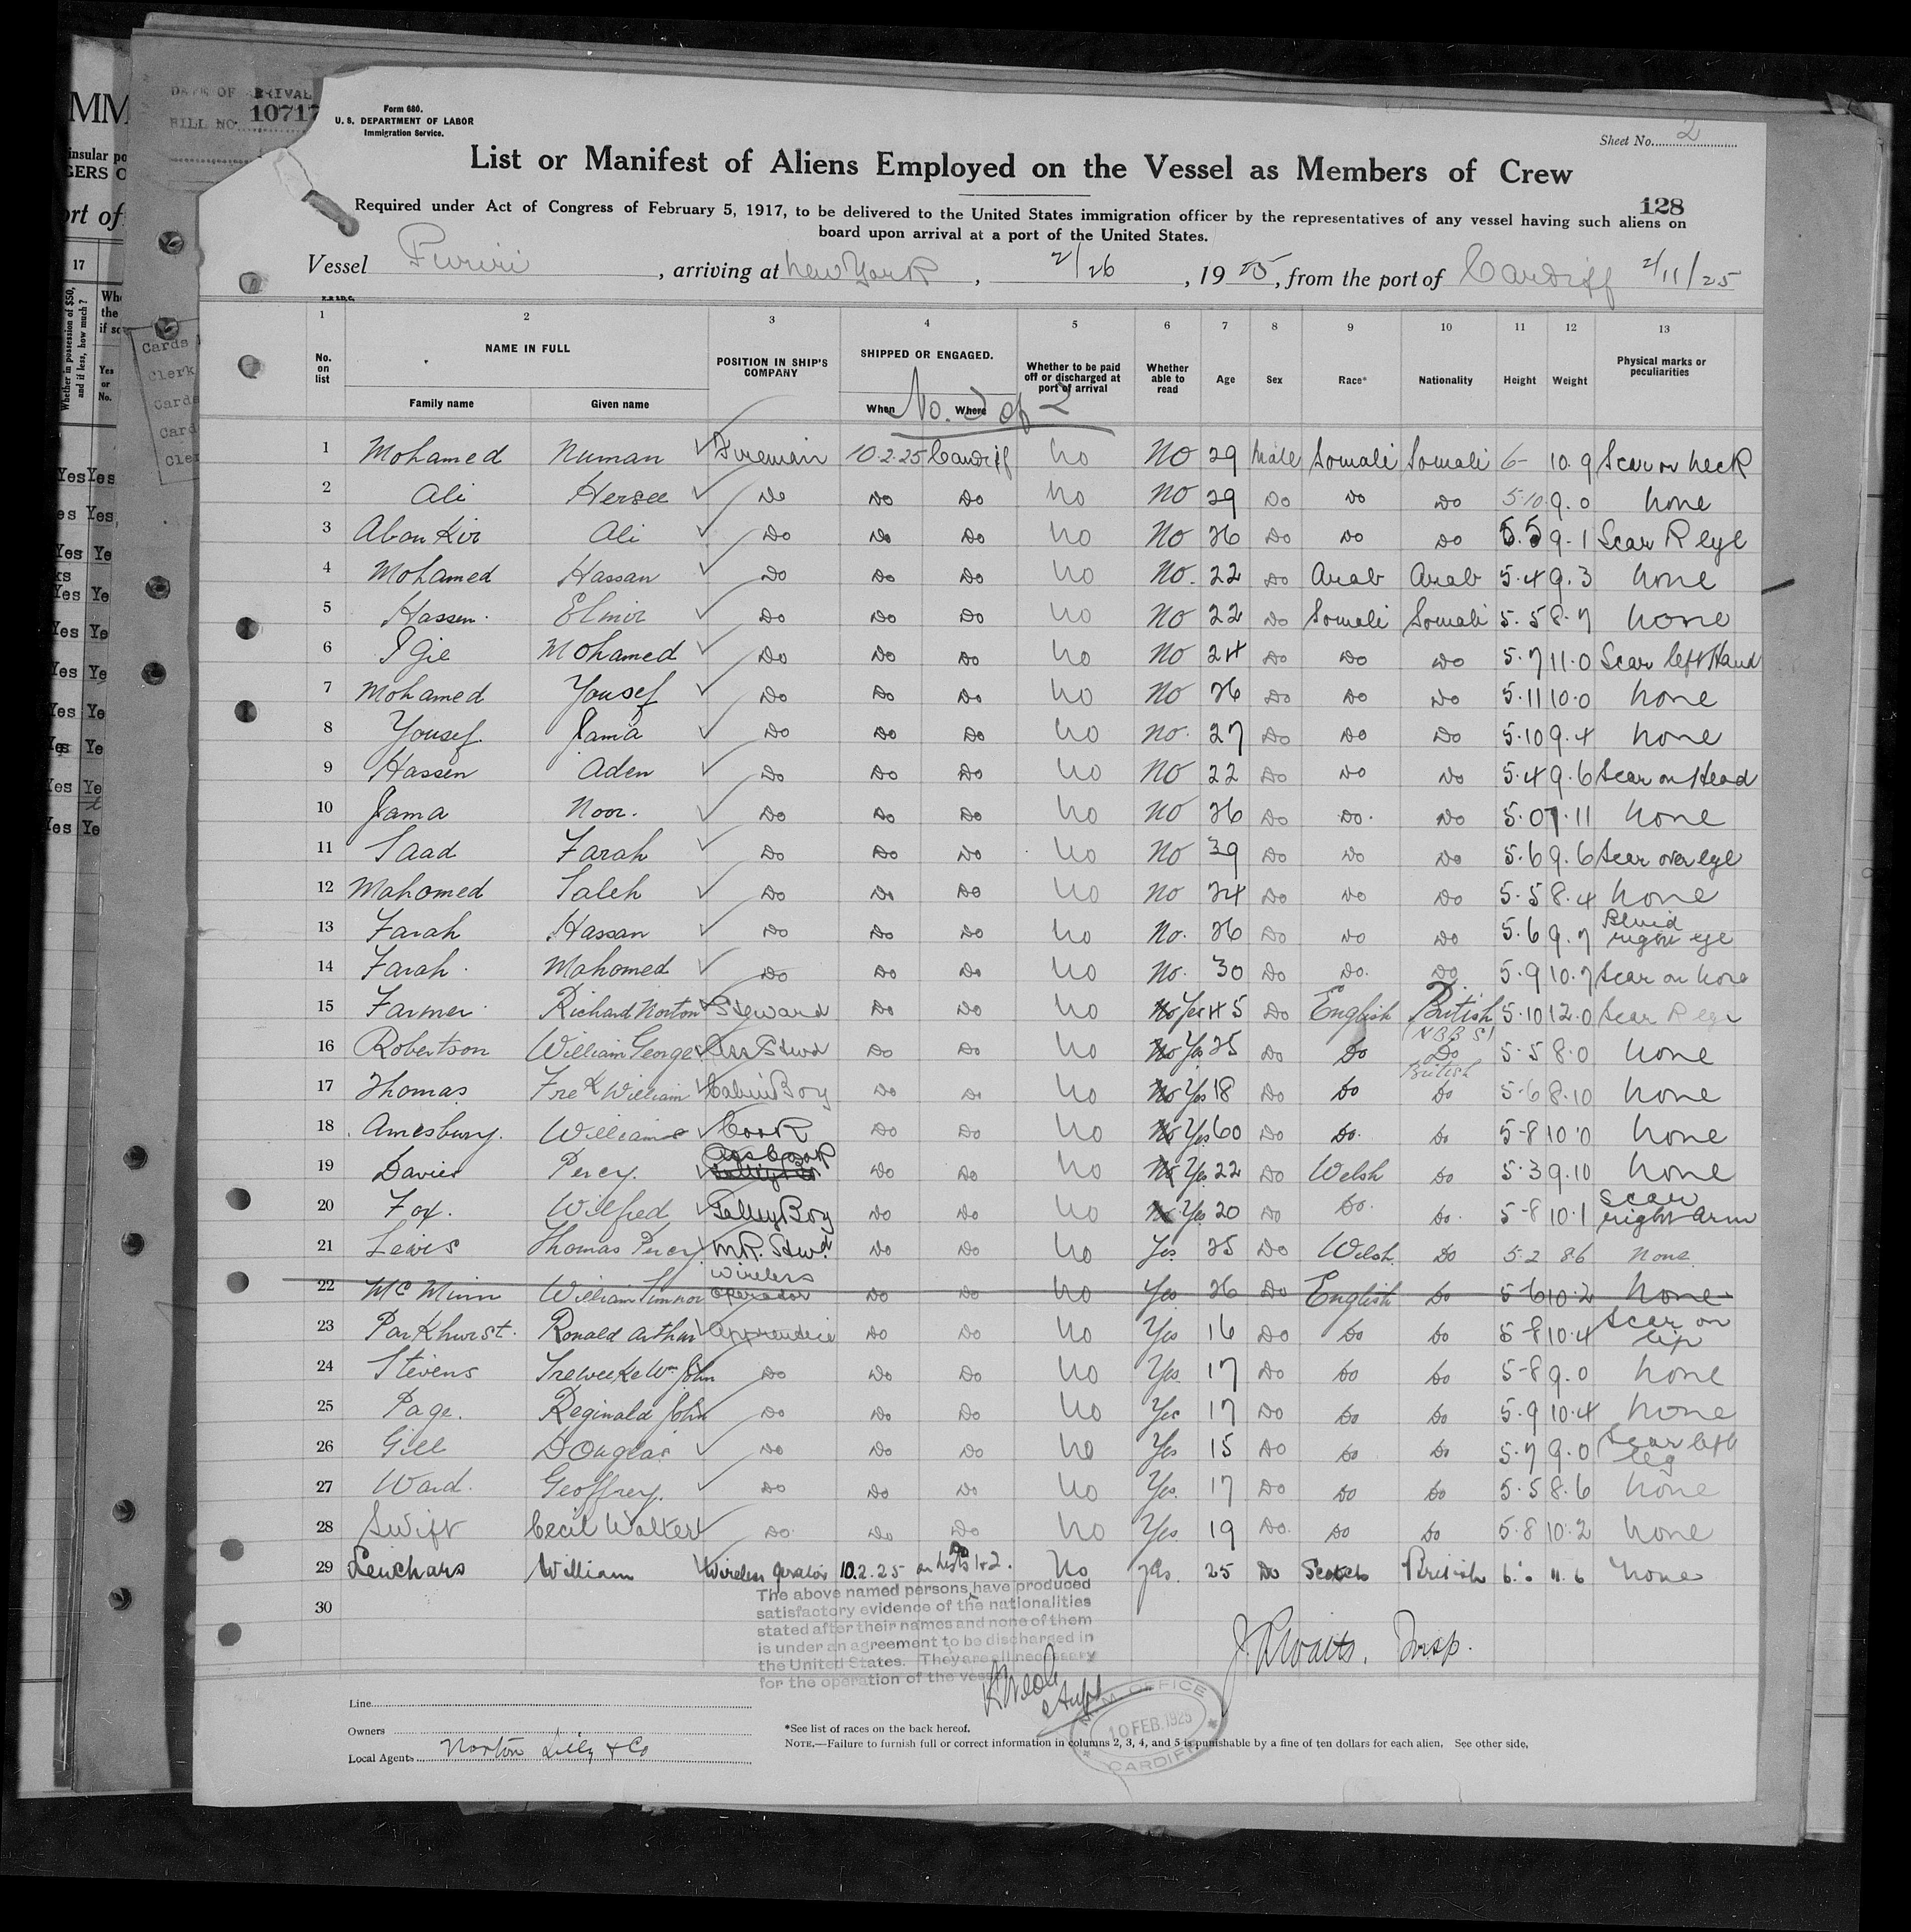 DATE OF ARRIVAL
BILL NO. 10717
Form 680.
U. S. DEPARTMENT OF LABOR
Immigration Service.
Sheet No. 2
List or Manifest of Aliens Employed on the Vessel as Members of Crew
128
Required under Act of Congress of February 5, 1917, to be delivered to the United States immigration officer by the representatives of any vessel having such aliens on
board upon arrival at a port of the United States.
Vessel Puriri, arriving at New York, 2/26, 1925, from the port of Cardiff 2/11/25
1 2 3 4 5 6 7 8 9 10 11 12 13
No. on list NAME IN FULL Family name Given name POSITION IN SHIP'S COMPANY SHIPPED OR ENGAGED. When Where Whether to be paid off or discharged at port of arrival Whether able to read Age Sex Race* Nationality Height Weight Physical marks or peculiarities
No. 2 of 2
1 Mohamed Numan Fireman 10.2.25 Cardiff No No 29 Male Somali Somali 6- 10.9 Scar on neck
2 Ali Hersee Do Do Do No No 29 Do Do Do 5.10 9.0 None
3 Ali Do Do Do No No 26 Do Do Do 5.5 9.1 Scar R eye
4 Mohamed Hassan Do Do Do No No. 22 Do Arab Arab 5.4 9.3 None
5 Hassen. Elmir Do Do Do No No 22 Do Somali Somali 5.5 8.7 None
6 Igie Mohamed Do Do Do No No 24 Do Do Do 5.7 11.0 Scar left Hand
7 Mohamed Yousef Do Do Do No No 26 Do Do Do 5.11 10.0 None
8 Yousef Jama Do Do Do No No. 27 Do Do Do 5.10 9.4 None
9 Hassen Aden Do Do Do No No 22 Do Do Do 5.4 9.6 Scar on Head
10 Jama Noor. Do Do Do No No 26 Do Do. Do 5.0 7.11 None
11 Saad Farah Do Do Do No No 39 Do Do Do 5.6 9.6 Scar over eye
12 Mahomed Saleh Do Do Do No No 24 Do Do Do 5.5 8.4 None
13 Farah Hassan Do Do Do No No. 26 Do Do Do 5.6 9.7 right eye
14 Farah. Mahomed Do Do Do No No. 30 Do Do. Do. 5.9 10.7 Scar on
15 Farmer. Richard Norton Steward Do Do No No Yes 45 Do English British 5.10 12.0 Scar R eye
(N B B S)
16 Robertson William George Ass Stwd Do Do No No Yes 25 Do Do Do 5.5 8.0 None
British
17 Thomas Fredk William Cabin Boy Do Do No No Yes 18 Do Do Do 5-6 8.10 None
18 Amesbury. William Cook Do Do No No Yes 60 Do Do. Do 5-8 10.0 None
19 Davies Percy. Ass Cook Do Do No No Yes 22 Do Welsh Do 5.3 9.10 None
20 Fox. Wilfred Galley Boy Do Do No No Yes 20 Do Do. Do. 5-8 10.1 Scar right Arm
21 Lewis Thomas Percy M.R. Stwd Do Do No Yes 25 Do Welsh Do 5.2 8.6 None
22 Mc Minn William Wireless operator Do Do No Yes 26 Do English Do 5-6 10.2 None
23 Parkhurst. Ronald Arthur Apprentice Do Do No Yes 16 Do Do Do 5-8 10.4 Scar on lip
24 Stevens Treweeke Wm John Do Do Do No Yes. 17 Do Do Do 5-8 9.0 None
25 Page. Reginald John Do Do Do No Yes 17 Do Do Do 5.9 10.4 None
26 Gill Douglas Do Do Do No Yes 15 Do Do Do 5.7 9.0 Scar left leg
27 Ward. Geoffrey. Do Do Do No Yes. 17 Do Do Do 5.5 8.6 None
28 Swift Cecil Walter Do Do Do No Yes. 19 Do. Do Do 5.8 10.2 None
29 Leuchars William Wireless Operator 10.2.25 on lists 1&2. No Yes. 25 Do Scotch British 6.0 11.6 None
30
The above named persons have produced
satisfactory evidence of the nationalities
stated after their names and none of them
is under an agreement to be discharged in
the United States. They are all necessary
for the operation of the vessel
Insp.
Line
Owners
Local Agents Norton Lilly & Co
*See list of races on the back hereof.
NOTE.—Failure to furnish full or correct information in columns 2, 3, 4, and 5 is punishable by a fine of ten dollars for each alien. See other side.
M.M. OFFICE
10 FEB. 1925
CARDIFF